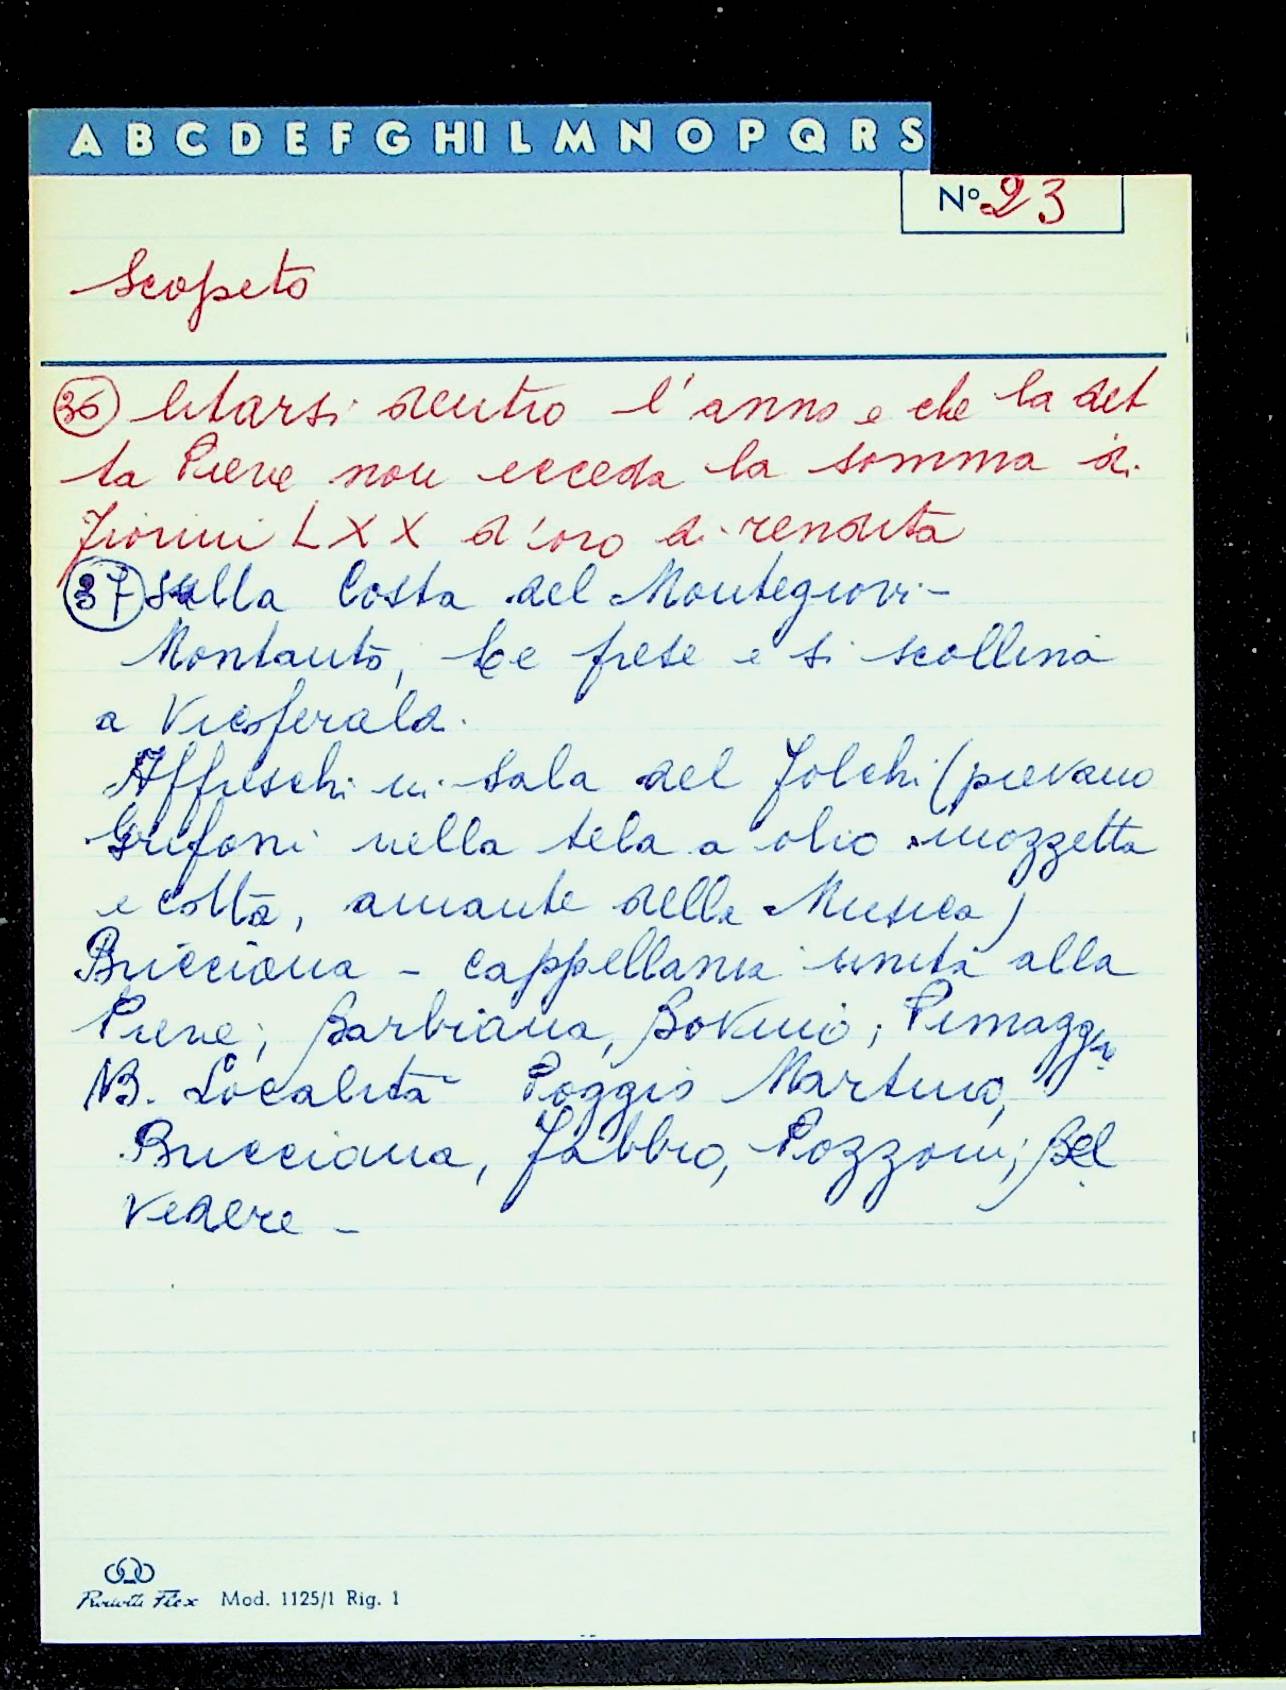 A B C D E F G H I L M N O P Q R S
N° 23
Scopeto
36 litarsi dentro l'anno e che la det
ta Pieve non ecceda la somma di
fiorini LXX d'oro di rendita
37 sulla Costa del Montegiovi-
Montauto, Le frese e si scollina
a Vicoferald.
Affreschi in sala del Folchi (pievano
Grifoni nella tela a olio mozzetta
e cotta, amante della Musica)
Bricciana - cappellania unita alla
Pieve; Barbiana, Bovino; Pimaggio
NB. Località Poggio Martino,
Bricciana, Fabbio, Pozzoni; Bel
vedere -
Flex Mod. 1125/1 Rig. 1